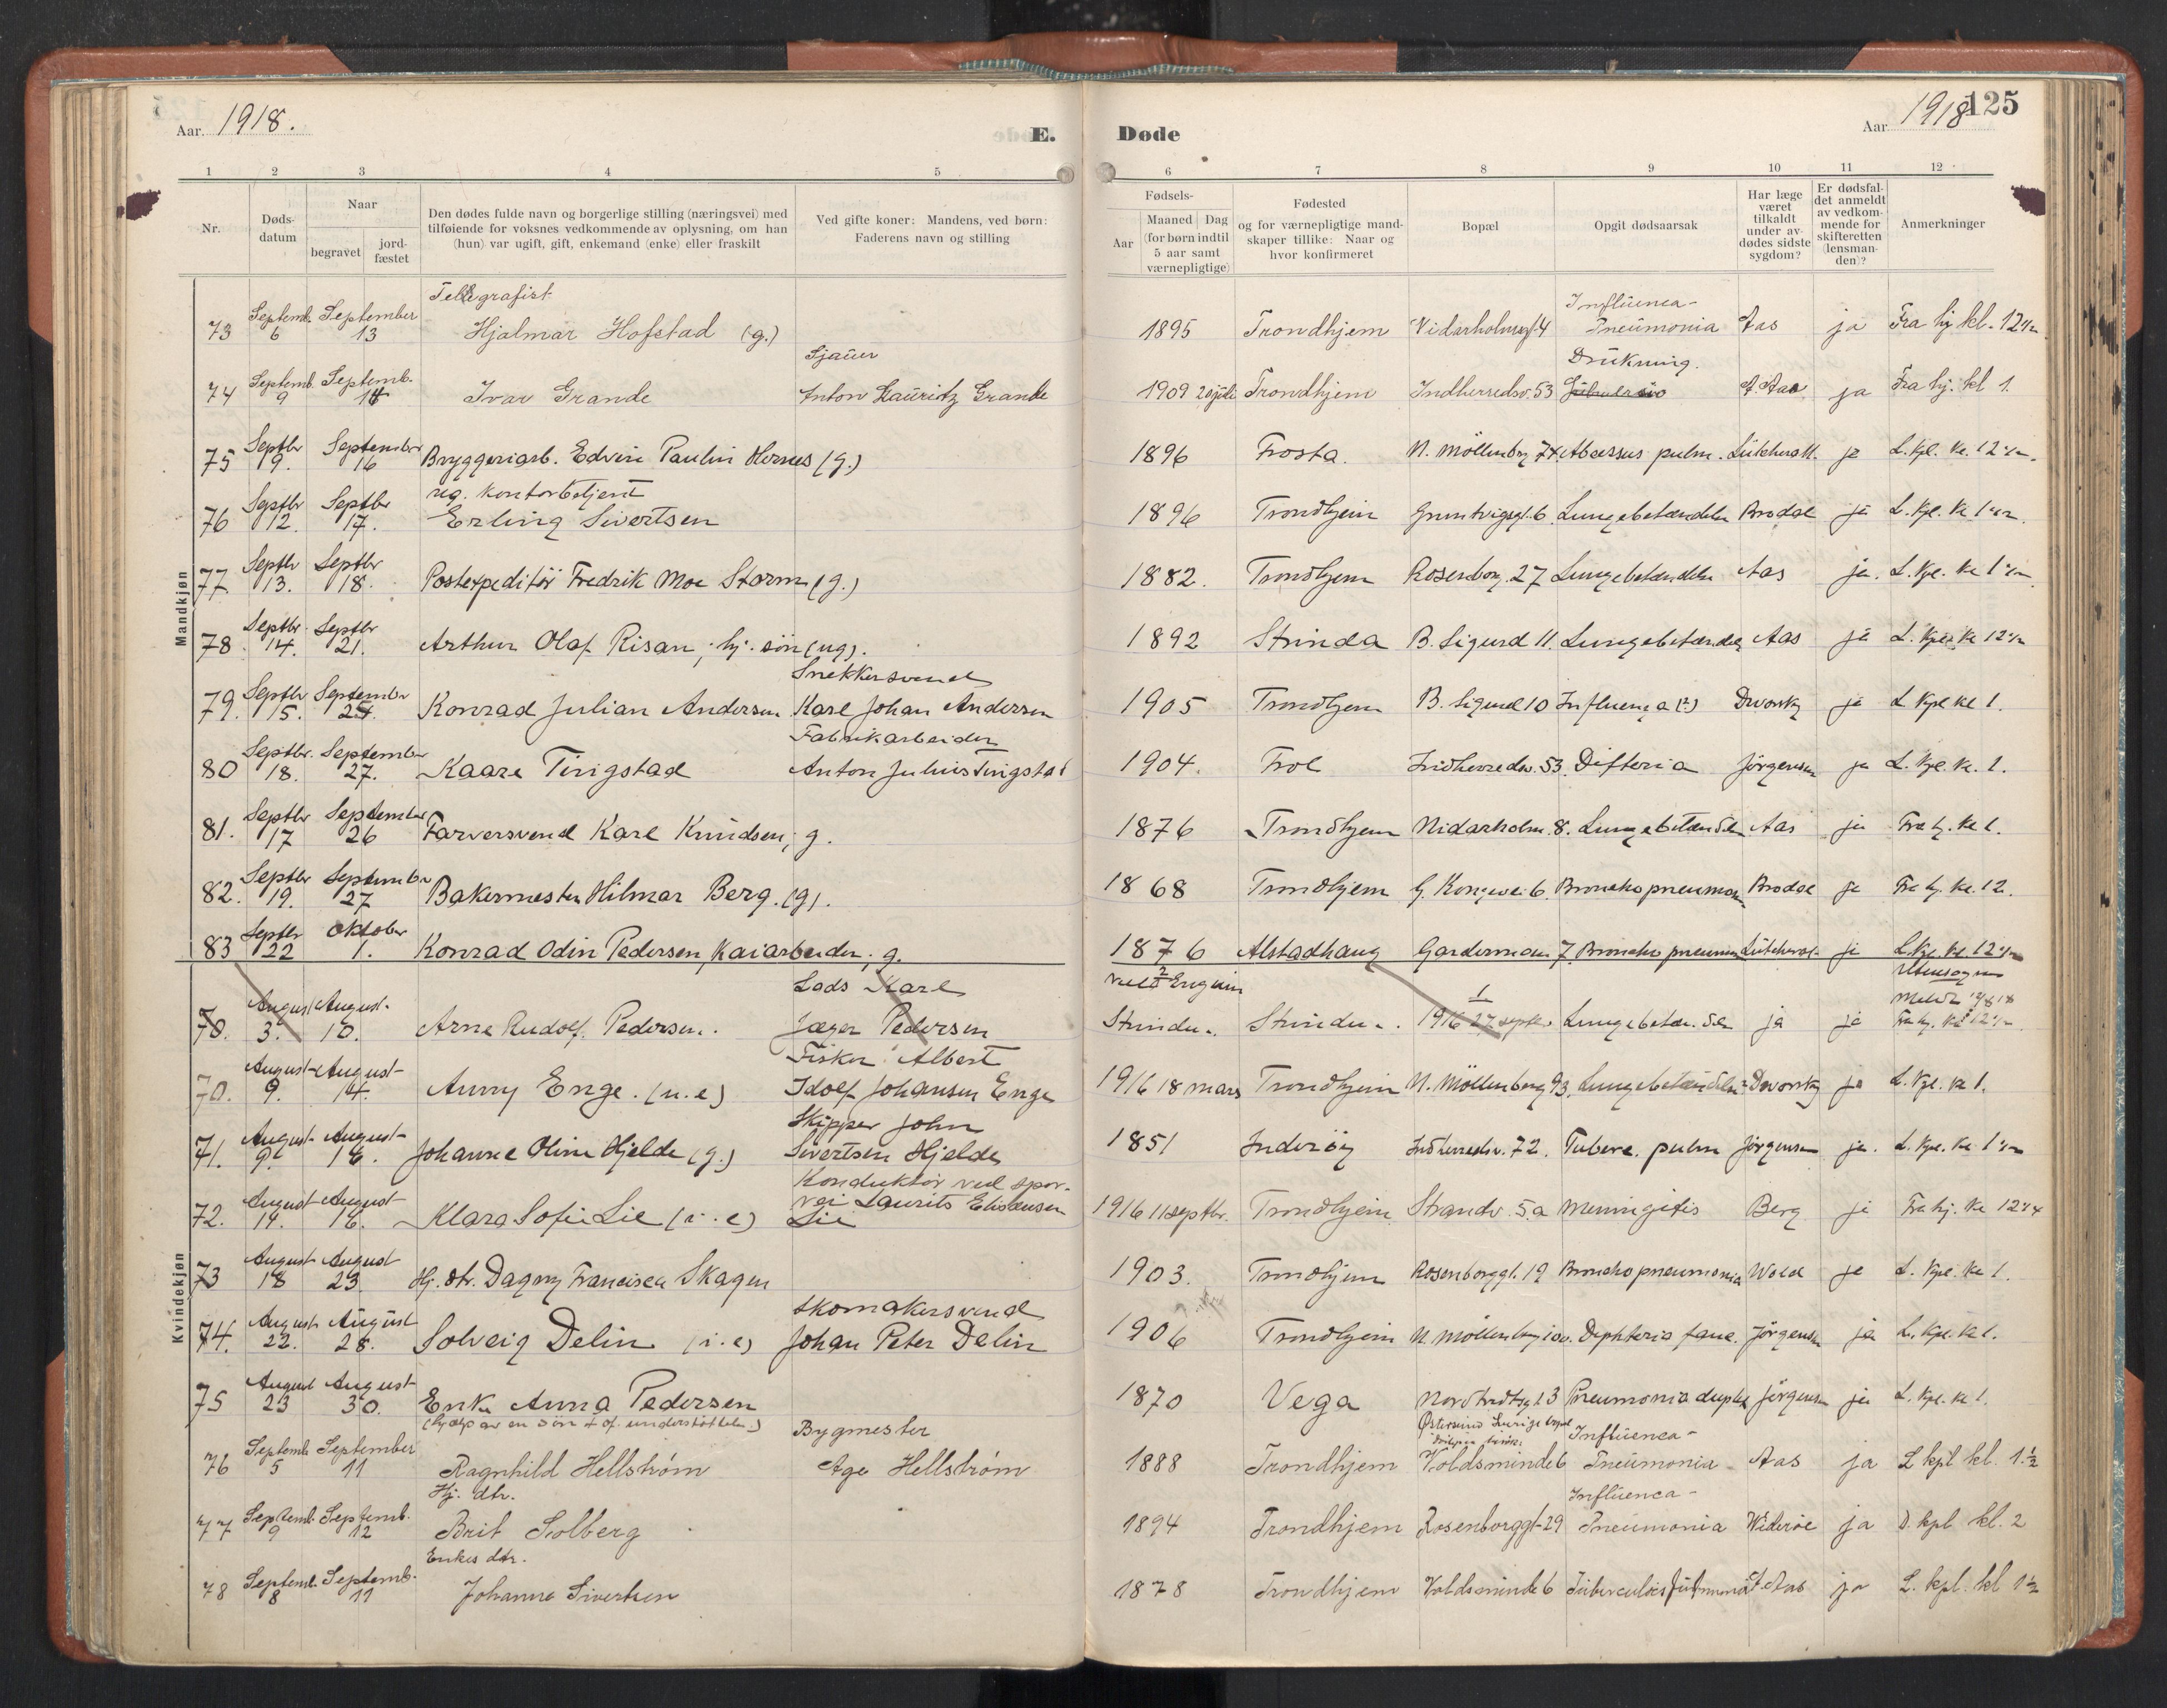 Aar 1918. E.
Døde Aar 1918 125
1 2 3 4 5
6 7 8 9 10 11 12
Nr.
Døds-
datum
Naar
begravet
jord-
fæstet
Den dødes fulde navn og borgerlige stilling (næringsvei) med
tilføiende for voksnes vedkommende av oplysning, om han
(hun) var ugift, gift, enkemand (enke) eller fraskilt
Ved gifte koner: Mandens, ved børn:
Faderens navn og stilling
Fødsels-
Aar
Maaned Dag
(for børn indtil
5 aar samt
værnepligtige)
Fødested
og for værnepligtige mand-
skaper tillike: Naar og
hvor konfirmeret
Bopæl
Opgit dødsaarsak
Har læge
været
tilkaldt
under av-
dødes sidste
sygdom?
Er dødsfal-
det anmeldt
av vedkom-
mende for
skifteretten
(lensman-
den)?
Anmerkninger
Mandkjøn
Telegrafist Influenca-
73 Septemb. 6 September 13 Hjalmar Hofstad (g.) 1895 Trondhjem Nidarholmsgt. 4 Pneumonia Aas ja Fra hj. kl. 12 1/2
Sjauer Drukning.
74 Septemb. 9 Septemb. Ivar Grande Anton Lauritz Grande 1909 20 juli Trondhjem Indherredsv. 53 Aas ja Fra hj. kl 1.
75 Septbr 9. September 16 Bryggeriarb. Edvin Paulin Hernes (g.) 1896 Frosta. N. Möllenbrg 74. Abcessus pulm. ja L. Kpl. kl. 12 1/2
reg. Kontorbetjent
76 Septbr 12. Septbr 17. Erling Sivertsen 1896 Trondhjem Gruntvigsgt. 6 Lungebetændelse ja L. Kpl. kl 1 1/2
77 Septbr 13. Septbr 18. Postexpeditör Fredrik Moe Storm (g.) 1882. Trondhjem Rosenborg. 27 Lungebetændelse Aas ja. L. Kpl. kl 1 1/2
78 Septbr. 14. Septbr 21. Arthur Olaf Risan, hj. sön (ug). 1892 Strinda B. Sigurd 11. Lungebetændelse Aas ja L. Kpl. kl 12 1/2
Snekkersvend
79. Septbr 15. September 24. Konrad Julian Andersen Karl Johan Andersen 1905 Trondhjem B. Sigurd 10 Influenza (?) Dworsky ja L Kpl kl 1.
Fabrikarbeider
80 Septbr. 18. September 27. Kaare Tingstad Anton Julius Tingstad 1904. Frol Indherredsv. 53. Difteria Jörgensen ja L. Kpl. kl. 1.
81. Septbr 17 September 26 Farversvend Karl Knudsen, g. 1876 Trondhjem Nidarholm. 8. Lungebetændelse Aas ja Fra hj. kl 1.
82. Septbr 19. September 27 Bakermester Hilmar Berg. (g). 1868 Trondhjem G. Kongevei 6. Bronchopneumoni ja Fra hj. kl. 12.
83 Septbr 22 Oktober 1. Konrad Odin Pedersen, Kaiarbeider, g. 1876 Alstadhaug 7. Broncho pneumoni ja L. Kpl. kl. 12 1/2
Kvindekjøn
Lods Karl
70. August 3. August 10. Arne Rudolf Pedersen. Jæger Pedersen Strinda. Strinda. 1916 27 septr. Lungebetændelse ja ja Fra hj. kl 12 1/2
Fisker Albert
70. August 9. August 14. Anny Enge. (u.e) Idolf Johansen Enge 1916 18 mars Trondhjem N. Möllenberg 93. Lungebetændelse Dworsky ja L. Kpl. kl 1.
Skipper John
71. August 9. August 16. Johanne Oline Hjelde (g.) Sivertsen Hjelde 1851 Inderöy Indherredsv. 72. Tuberc. pulm Jörgensen ja. L. Kpl. kl 1 1/2
Konduktör ved spor-
vei Laurits
72. August 14. August 16. Klara Sofie Lie (i.e) Lie 1916 11 septbr. Trondhjem Strandv. 5a Meningitis Berg ja Fra hj. kl 12 1/4
73 August 18 August 23. Hj. dtr. Dagny Francisca Skagen 1903. Trondhjem Rosenborggt. 19 Bronchopneumonia Wold ja L. Kpl. kl 1.
Skomakersvend
74. August 22. August 28. Solveig Delin (i.e) Johan Peter Delin 1906 Trondhjem N. Möllenberg Diphteria fauc. Jörgensen ja L. Kpl. kl 1.
75 August 23 August 30. Enke Anna Pedersen 1870 Vega Pneumonia duplex Jörgensen ja L. Kpl. kl 1.
(hj. av en sön + of. understöttelse.) Bygmester Influenca-
76 Septemb. 5 September 11 Ragnhild Hellstrøm Age Hellstrøm 1888 Trondhjem Voldsminde 6 Pneumonia Aas ja L kpl kl. 1.½
Hj. dtr. Influenca-
77 Septemb. 9 Septemb. 12 Brit Solberg 1894 Trondhjem Rosenborggt-29 Pneumonia Widerøe ja D. kpl kl. 2
Enkes dtr.
78 Septemb. 8 Septemb. 11 Johanna Sivertsen 1878 Trondhjem Voldsminde 6 Tuberculosis Pulmonum Aas ja L. kpl. kl 1½